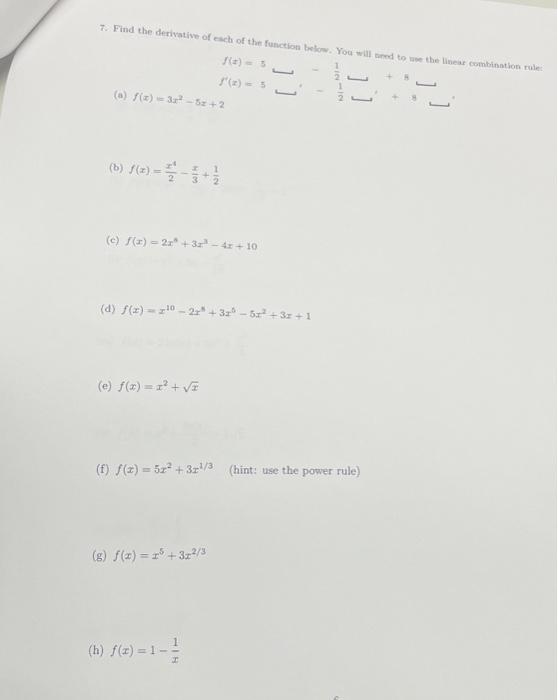 7. Find the derivative of each of the function below. You will need to use the linear combination rule:
f(x) = 5 ⎵ − 1/2 ⎵ + 8 ⎵
f′(x) = 5 ⎵′ − 1/2 ⎵′ + 8 ⎵′
(a) f(x) = 3x² − 5x + 2
(b) f(x) = x⁴/2 − x/3 + 1/2
(c) f(x) = 2x⁸ + 3x³ − 4x + 10
(d) f(x) = x¹⁰ − 2x⁸ + 3x⁵ − 5x² + 3x + 1
(e) f(x) = x² + √x
(f) f(x) = 5x² + 3x^{1/3} (hint: use the power rule)
(g) f(x) = x⁵ + 3x^{2/3}
(h) f(x) = 1 − 1/x